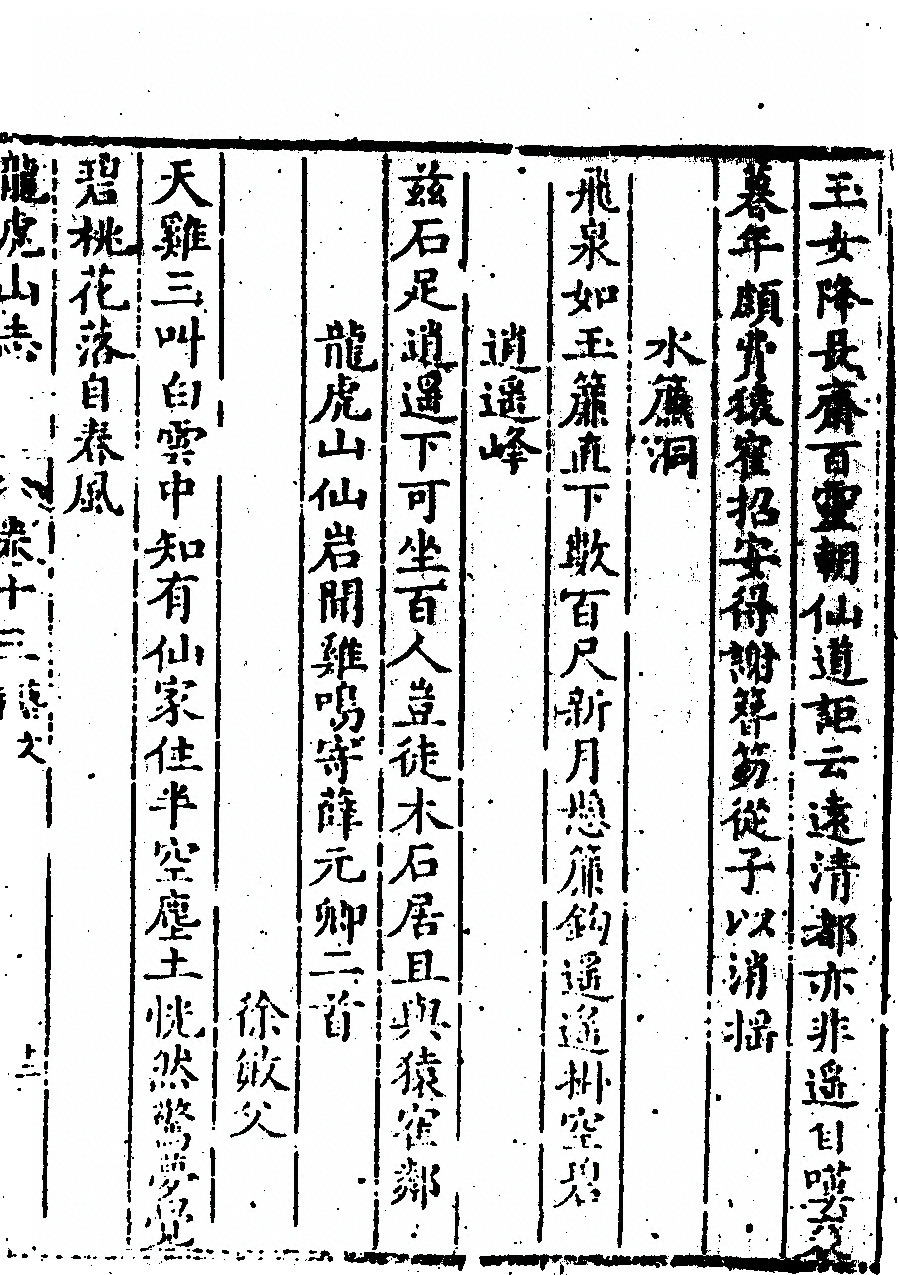 玉女降長齋百靈朝仙道詎云遠清都亦非遥自嘆
暮年頗費猿隺招安得謝簪笏從子以消摇
水簾洞
飛泉如玉簾直下數百尺新月懸簾鈎遥遥掛空碧
逍遥峰
兹石足逍遥下可坐百人豈徒木石居且與猿隺鄰
龍虎山仙岩聞雞鳴寄薛元卿二首
徐敏父
天雞三叫白雲中知有仙家住半空塵土恍然驚夢覺
碧桃花落自春風
龍虎山志
卷十三
藝文
十二